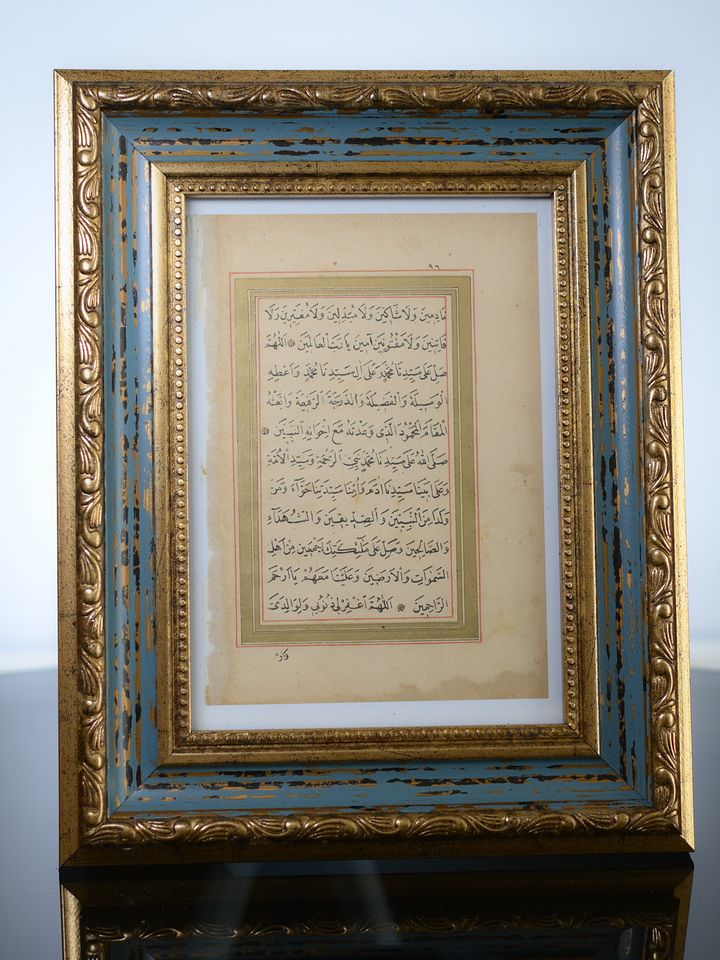 ٩٦
نَادِمِينَ وَلَا شَاكِّينَ وَلَا مُبَدِّلِينَ وَلَا مُغَيِّرِينَ وَلَا
فَاتِنِينَ وَلَا مَفْتُونِينَ آمِينَ يَا رَبَّ الْعَالَمِينَ اَللّٰهُمَّ
صَلِّ عَلَى سَيِّدِنَا مُحَمَّدٍ وَعَلَى اٰلِ سَيِّدِنَا مُحَمَّدٍ وَاَعْطِهِ
الْوَسِيلَةَ وَالْفَضِيلَةَ وَالدَّرَجَةَ الرَّفِيعَةَ وَابْعَثْهُ
الْمَقَامَ الْمَحْمُودَ الَّذِى وَعَدْتَهُ مَعَ اِخْوَانِهِ النَّبِيِّينَ
صَلَّى اللّٰهُ عَلَى سَيِّدِنَا مُحَمَّدٍ نَبِيِّ الرَّحْمَةِ وَسَيِّدِ الْاُمَّةِ
وَعَلَى اَبِينَا سَيِّدِنَا اٰدَمَ وَاُمِّنَا سَيِّدَتِنَا حَوَّاءَ وَمَنْ
وَلَدَا مِنَ النَّبِيِّينَ وَالصِّدِّيقِينَ وَالشُّهَدَاءِ
وَالصَّالِحِينَ وَصَلِّ عَلَى مَلٰئِكَتِكَ اَجْمَعِينَ مِنْ اَهْلِ
السَّمٰوَاتِ وَالْاَرَضِينَ وَعَلَيْنَا مَعَهُمْ يَا اَرْحَمَ
الرَّاحِمِينَ اَللّٰهُمَّ اغْفِرْ لِى ذُنُوبِى وَلِوَالِدَىَّ